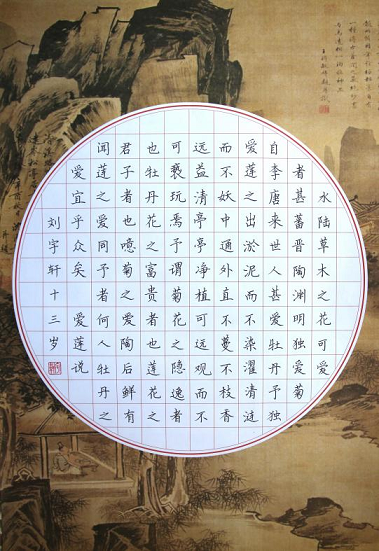 水陆草木之花可爱
者甚蕃晋陶渊明独爱菊
自李唐来世人甚爱牡丹予独
爱莲之出淤泥而不染濯清涟
而不妖中通外直不蔓不枝香
远益清亭亭净植可远观而不
可亵玩焉予谓菊花之隐逸者
也牡丹花之富贵者也莲花之
君子者也噫菊之爱陶后鲜有
闻莲之爱同予者何人牡丹之
爱宜乎众矣 爱莲说
刘宇轩十三岁